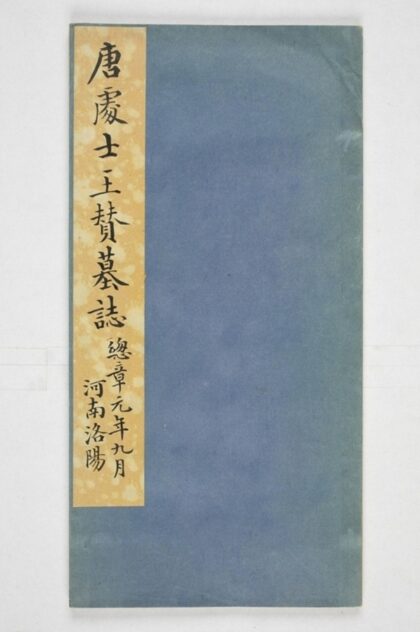 唐處士王賛墓誌
總章元年九月
河南洛陽